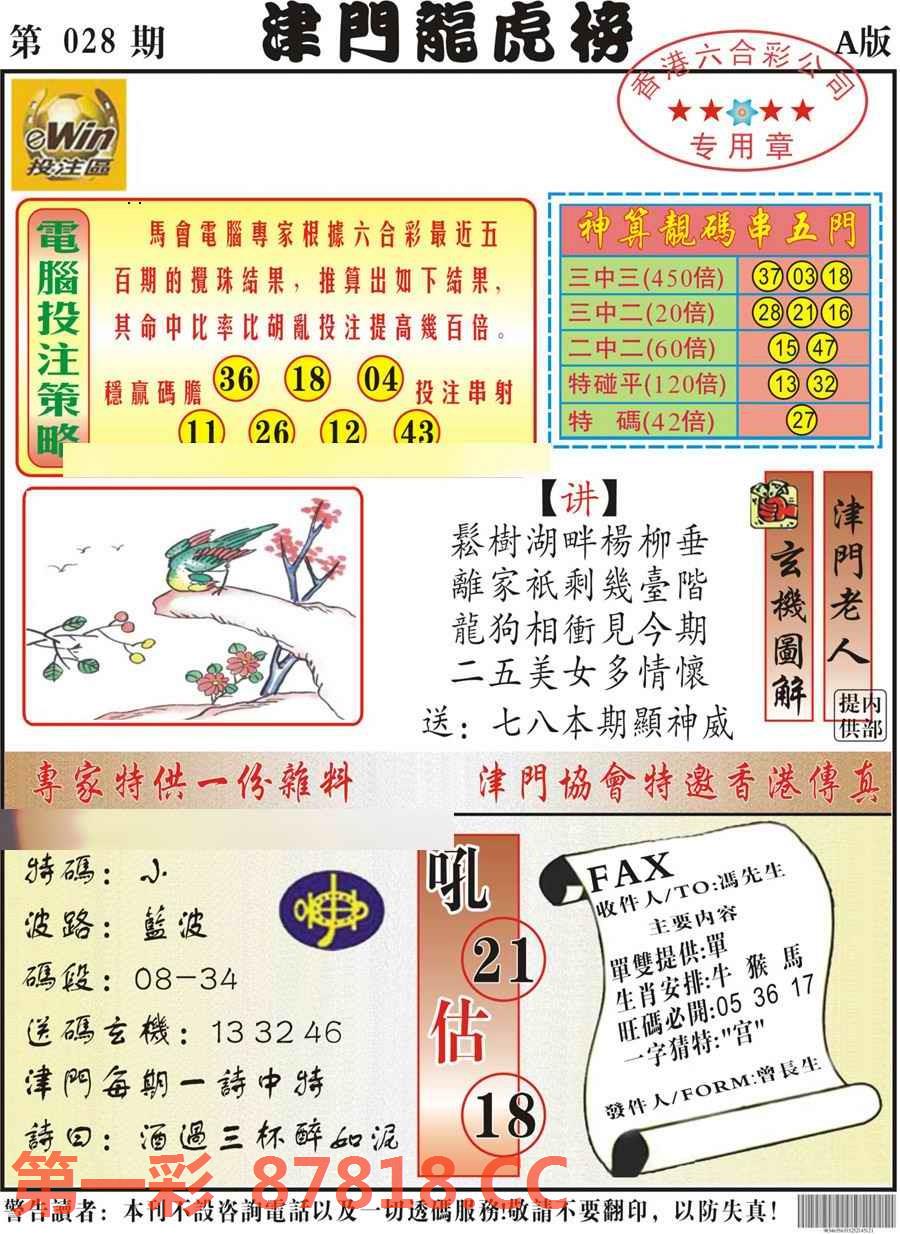 第 028 期
津門龍虎榜
A版
香港六合彩公司
专用章
eWin
投注區
電腦投注策略
馬會電腦專家根據六合彩最近五
百期的攪珠結果，推算出如下結果，
其命中比率比胡亂投注提高幾百倍。
穩贏碼膽 36 18 04 投注串射
11 26 12 43
神算靚碼串五門
三中三(450倍) 37 03 18
三中二(20倍) 28 21 16
二中二(60倍) 15 47
特碰平(120倍) 13 32
特 碼(42倍) 27
【讲】
鬆樹湖畔楊柳垂
離家祇剩幾臺階
龍狗相衝見今期
二五美女多情懷
送：七八本期顯神威
玄機圖解
津門老人
內部提供
專家特供一份雜料
津門協會特邀香港傳真
特碼：小
波路：藍波
碼段：08－34
送碼玄機：13 32 46
津門每期一詩中特
詩曰：酒過三杯醉如泥
吼
21
估
18
FAX
收件人/TO:馮先生
主要內容
單雙提供:單
生肖安排:牛 猴 馬
旺碼必開:05 36 17
一字猜特:"宫"
發件人/FORM:曾長生
第一彩 87818.CC
警告讀者：本刊不設咨詢電話以及一切透碼服務!敬請不要翻印，以防失真！